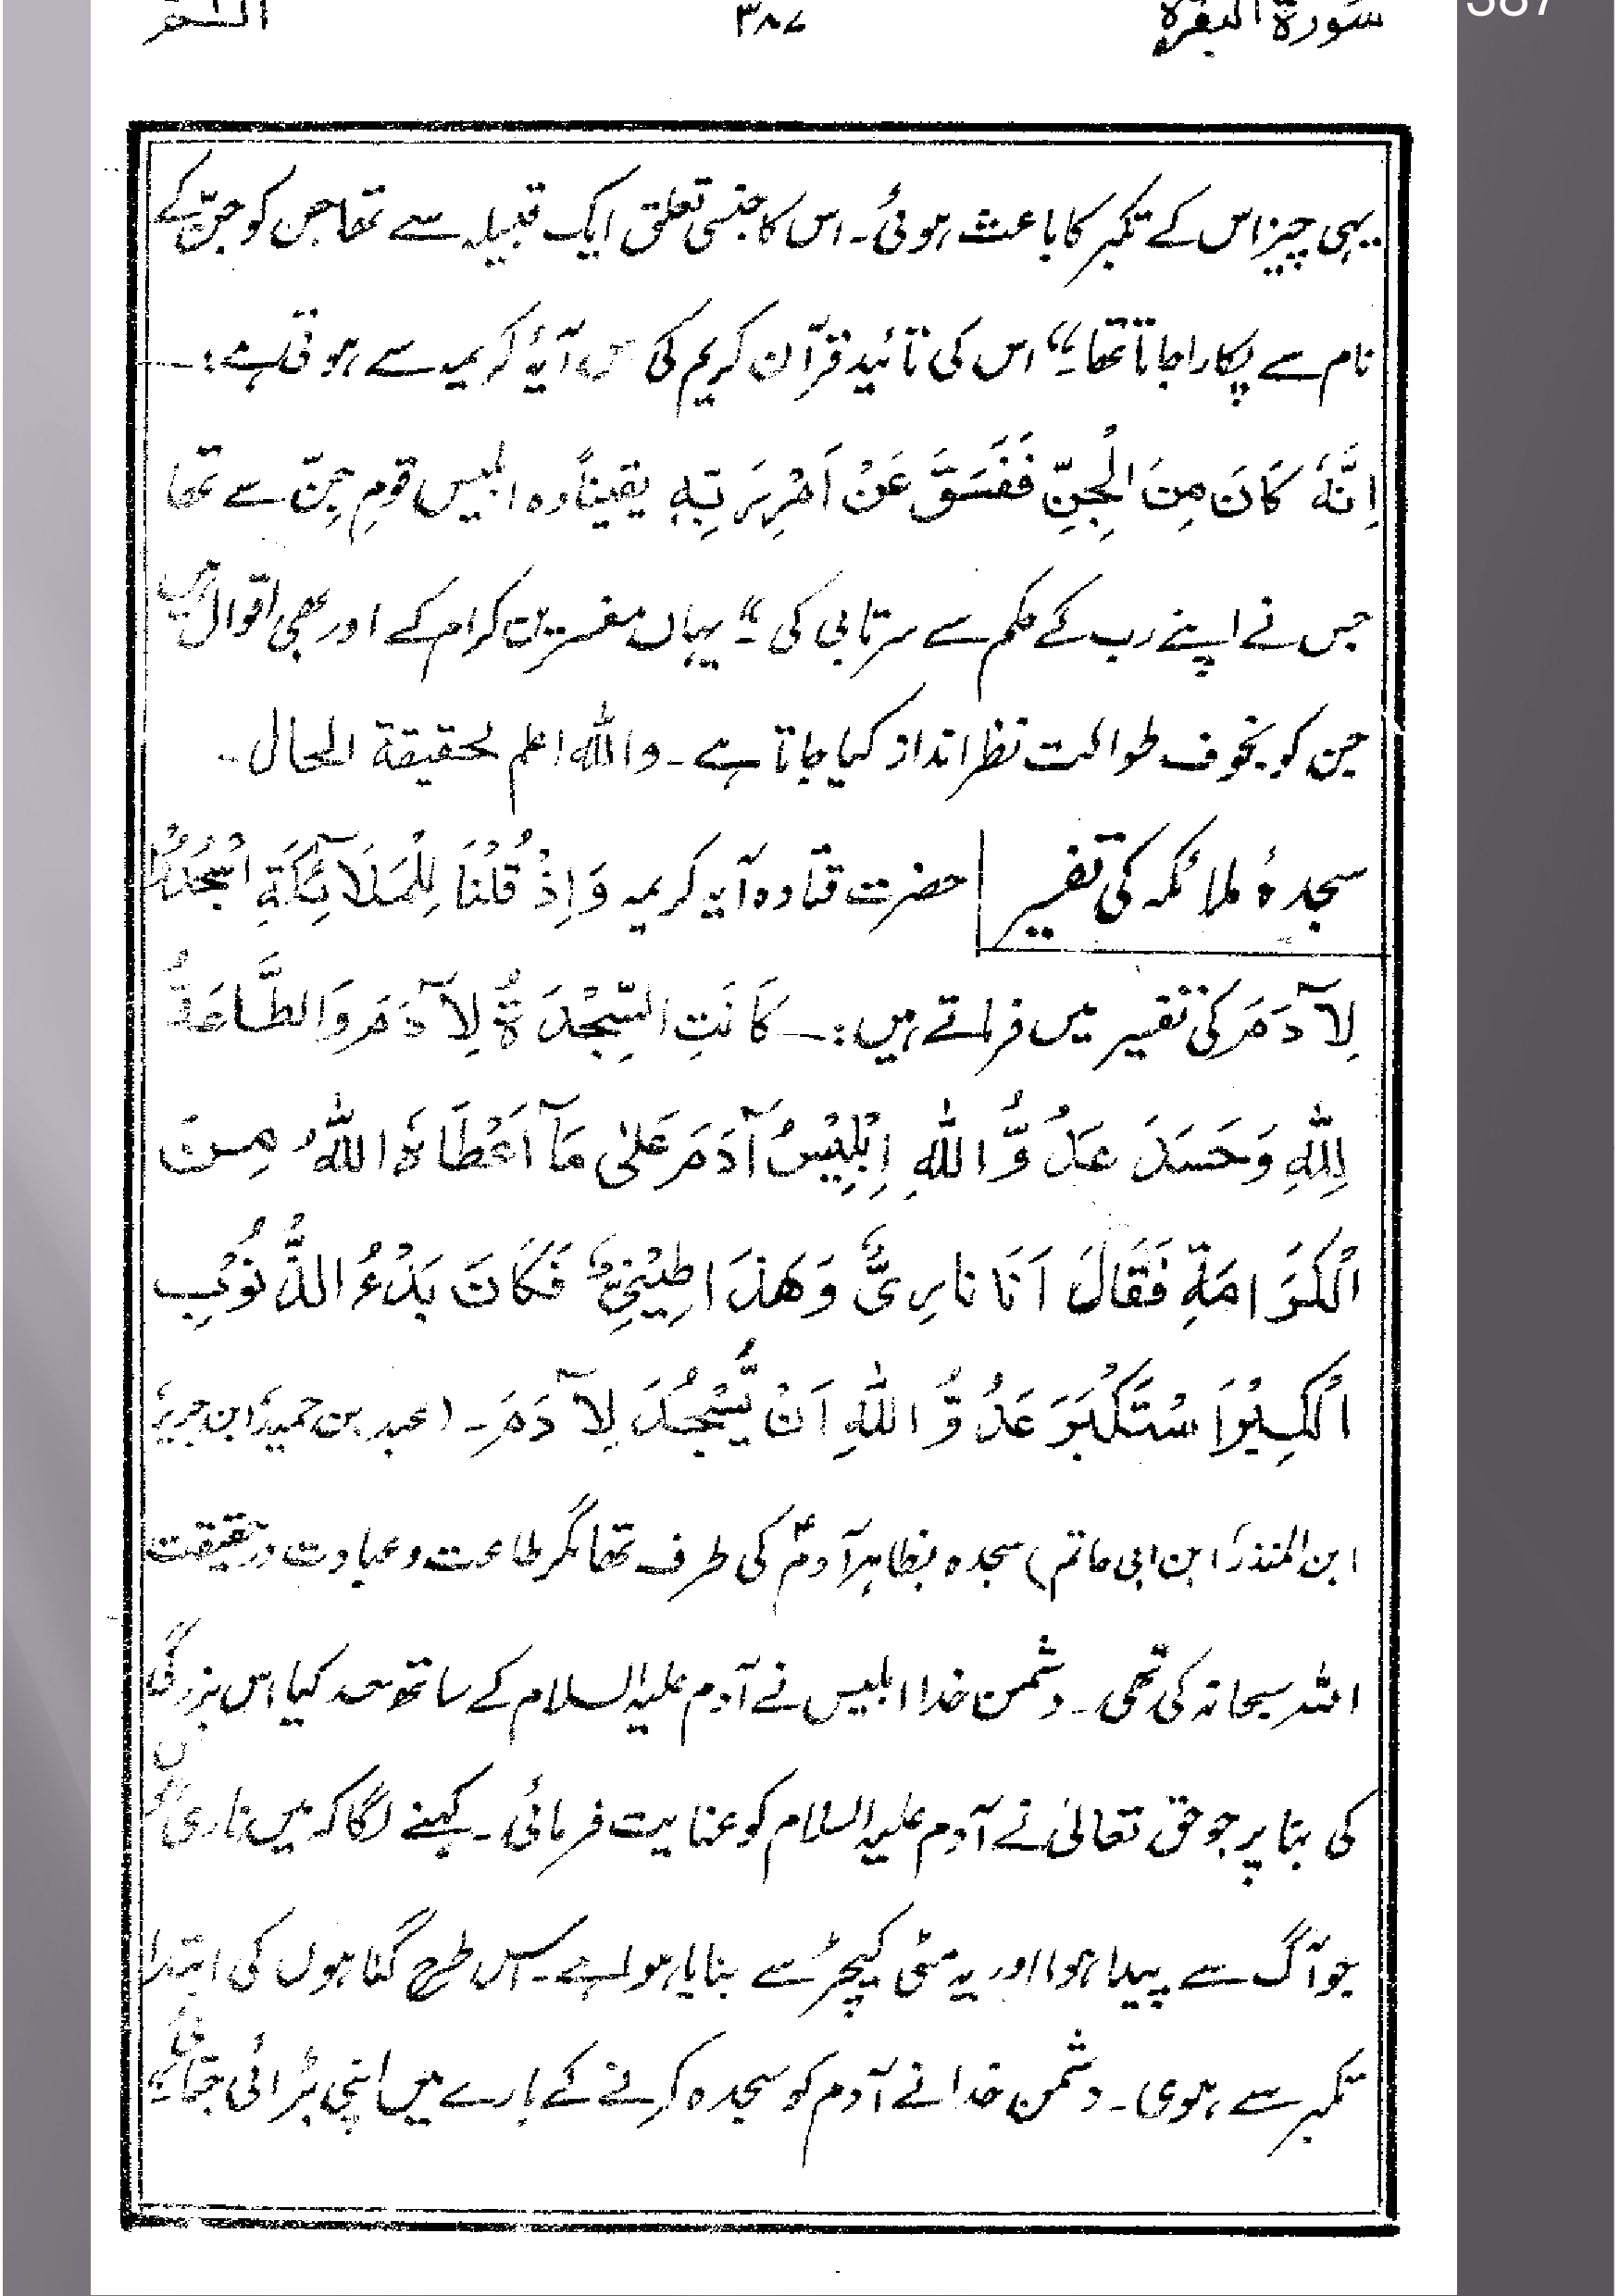 387
سورۃ البقرۃ ۳۸۷ الٓـمّٓ
یہی چیز اس کے تکبر کا باعث ہوئی۔ اس کا جنسی تعلق ایک قبیلہ سے تھا جن کو جنّ کے
نام سے پکارا جاتا تھا۔“ اس کی تائید قرآن کریم کی اس آیۂ کریمہ سے ہوتی ہے:۔
اِنَّهٗ كَانَ مِنَ الْجِنِّ فَفَسَقَ عَنْ اَمْرِ رَبِّهٖ یقیناً وہ ابلیس قومِ جِنّ سے تھا
جس نے اپنے رب کے حکم سے سرتابی کی۔“ یہاں مفسرین کرام کے اور بھی اقوال ہیں
جن کو بخوف طوالت نظر انداز کیا جاتا ہے۔ واللہ اعلم بحقیقۃ الحال۔
سجدۂ ملائکہ کی تفسیر حضرت قتادہ آیہ کریمہ وَاِذْ قُلْنَا لِلْمَلَآئِكَةِ اسْجُدُوْا
لِاٰدَمَ کی تفسیر میں فرماتے ہیں:۔ كَانَتِ السِّجْدَةُ لِاٰدَمَ وَالطَّاعَةُ
لِلّٰهِ وَحَسَدَ عَدُوُّ اللّٰهِ اِبْلِيْسُ آدَمَ عَلٰى مَآ اَعْطَاهُ اللّٰهُ مِنَ
الْكَرَامَةِ فَقَالَ اَنَا نَارِيٌّ وَهٰذَا طِيْنِيٌّ فَكَانَ بَدْءُ الذُّنُوْبِ
الْكِبْرَ اسْتَكْبَرَ عَدُوُّ اللّٰهِ اَنْ يَّسْجُدَ لِاٰدَمَ۔ (عبد بن حمید، ابن جریر،
ابن المنذر، ابن ابی حاتم) سجدہ بظاہر آدمؑ کی طرف تھا مگر طاعت و عبادت درحقیقت
اللہ سبحانہ کی تھی۔ دشمن خدا ابلیس نے آدم علیہ السلام کے ساتھ حسد کیا اس بزرگی
کی بنا پر جو حق تعالیٰ نے آدم علیہ السلام کو عنایت فرمائی۔ کہنے لگا کہ میں ناری ہوں
جو آگ سے پیدا ہوا اور یہ مٹی کیچڑ سے بنایا ہوا ہے۔ اس طرح گناہوں کی ابتدا
تکبر سے ہوی۔ دشمن خدا نے آدم کو سجدہ کرنے کے بارے میں اپنی بڑائی جتائی۔“